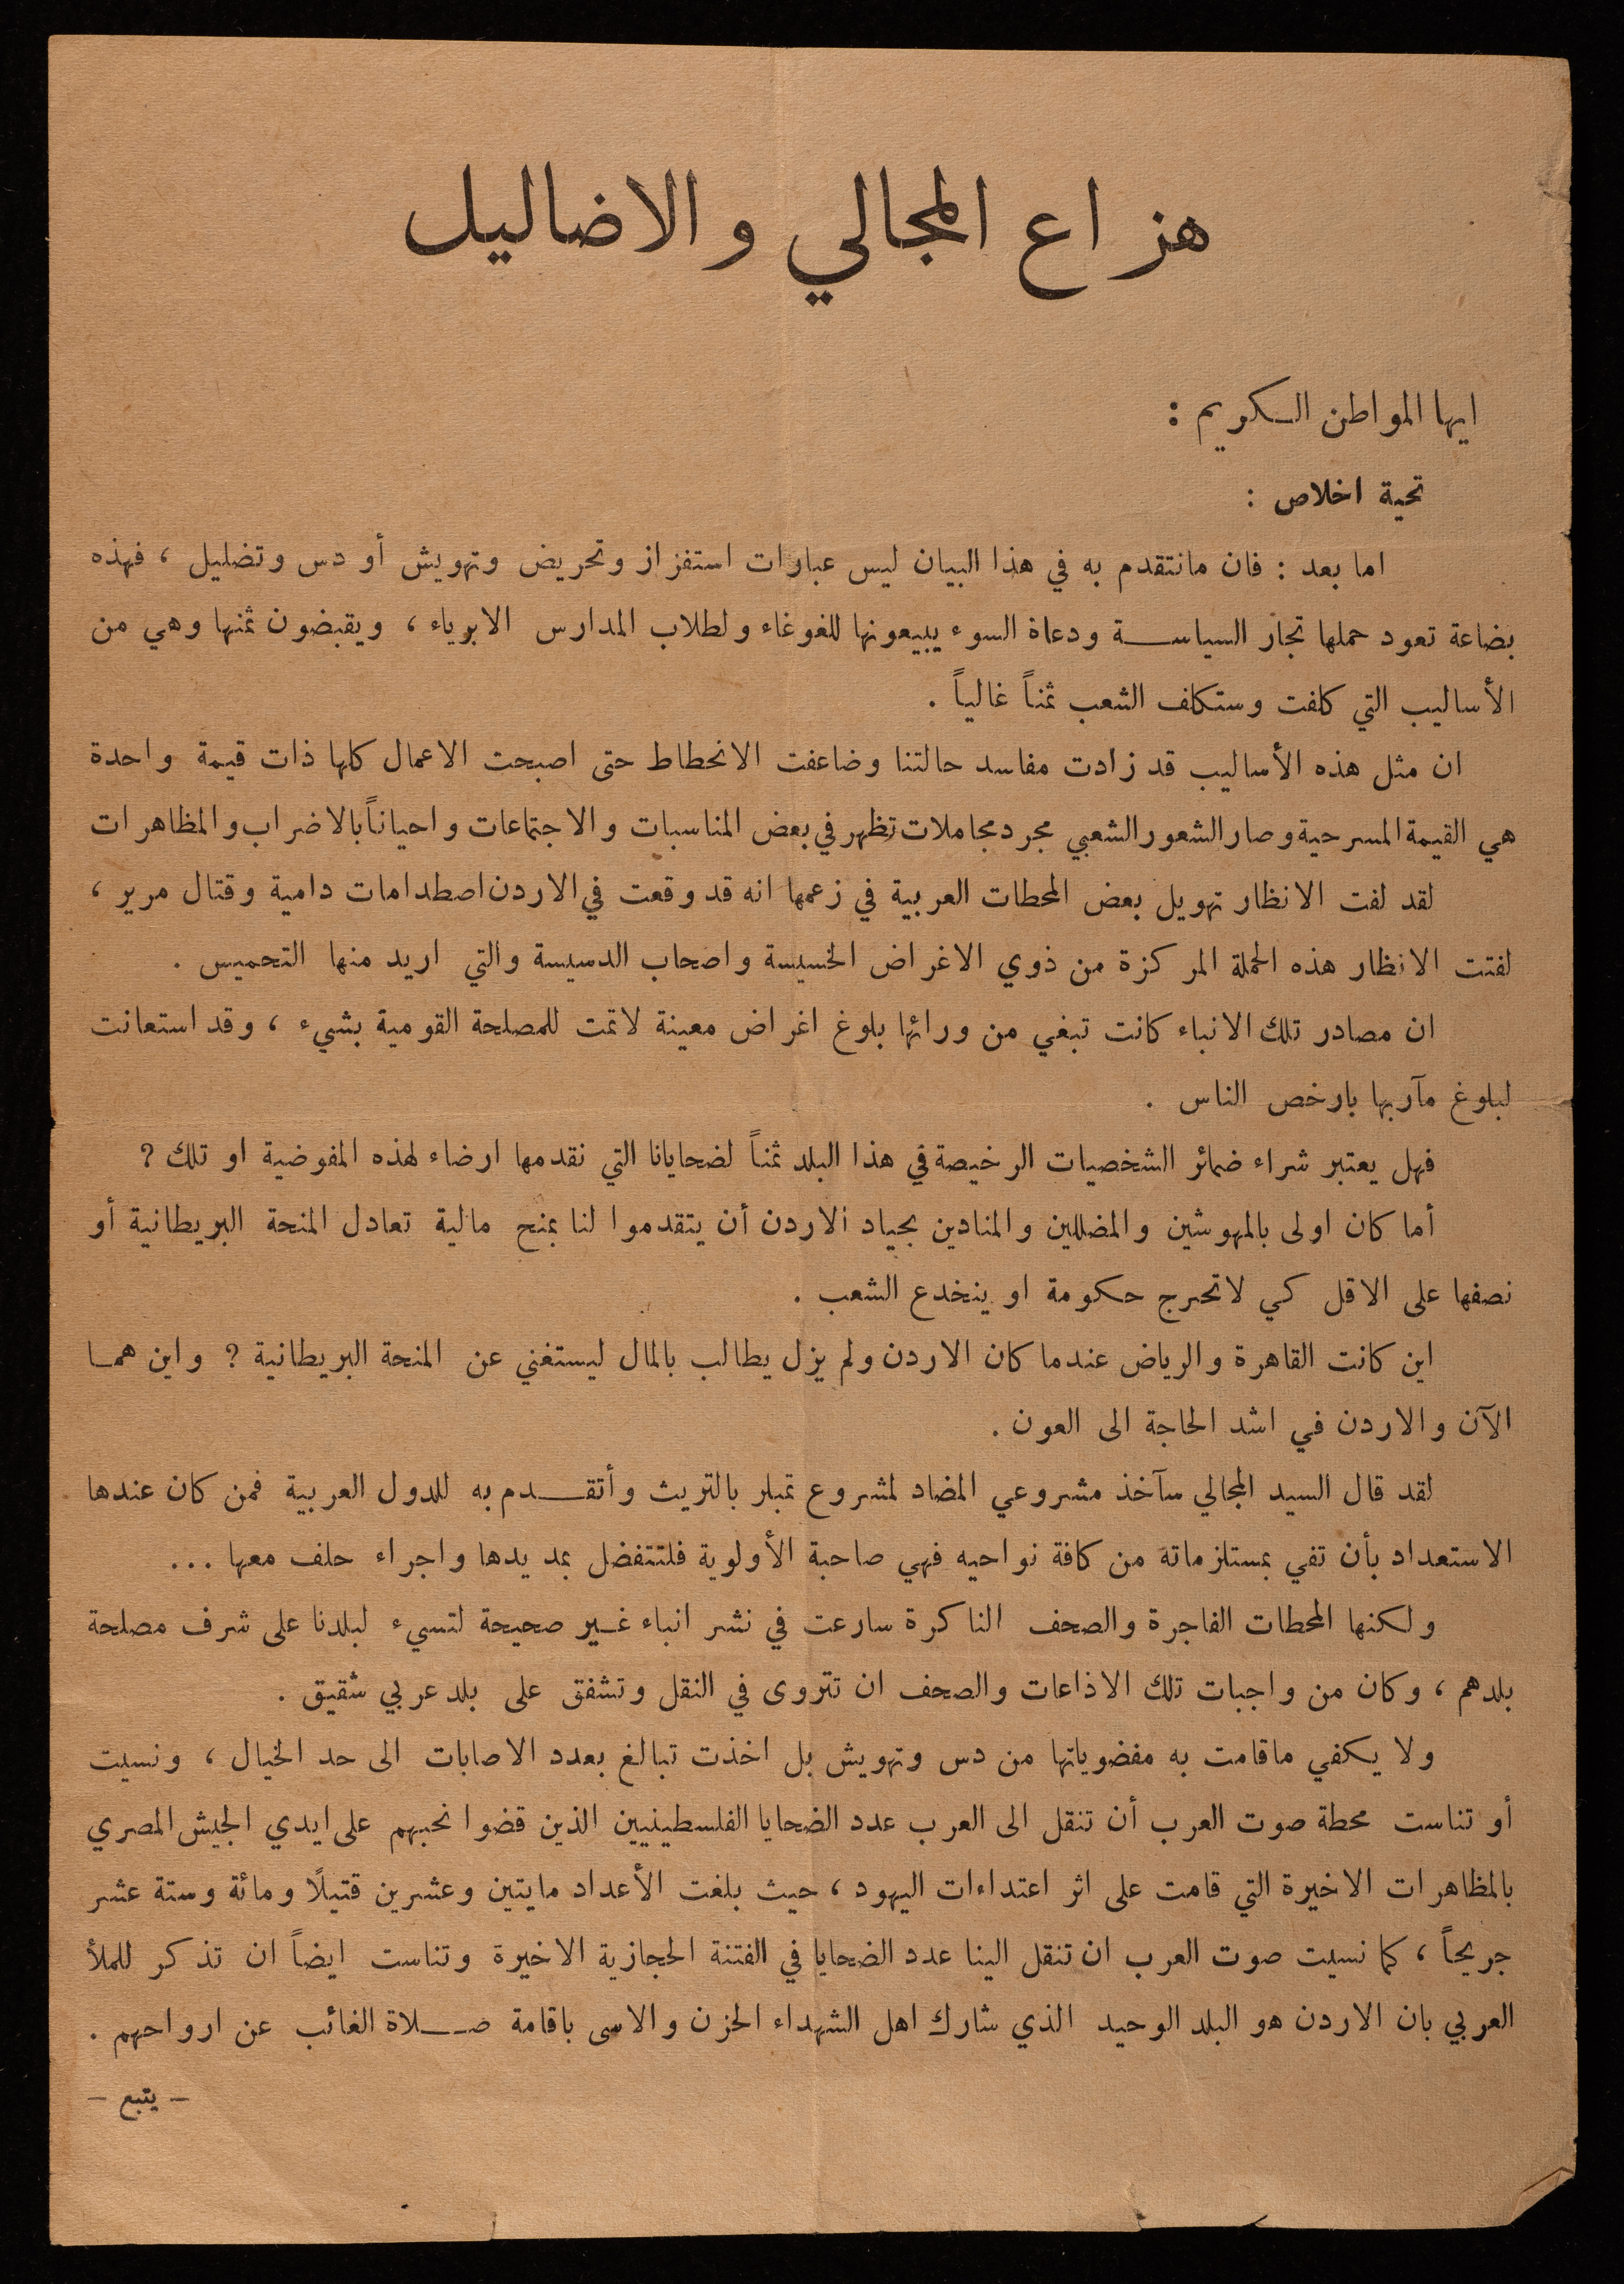 هزاع المجالي والاضاليل
ايها المواطن الكريم :
تحية اخلاص :
اما بعد : فان مانتقدم به في هذا البيان ليس عبارات استفزاز وتحريض وتهويش أو دس وتضليل ، فهذه
بضاعة تعود حملها تجار السياسة ودعاة السوء يبيعونها للغوغاء ولطلاب المدارس الابرياء ، ويقبضون ثمنها وهي من
الأساليب التي كلفت وستكلف الشعب ثمناً غالياً .
ان مثل هذه الأساليب قد زادت مفاسد حالتنا وضاعفت الانحطاط حتى اصبحت الاعمال كلها ذات قيمة واحدة
هي القيمة المسرحية وصار الشعور الشعبي مجرد مجاملات تظهر في بعض المناسبات والاجتماعات واحياناً بالاضراب والمظاهرات
لقد لفت الانظار تهويل بعض المحطات العربية في زعمها انه قد وقعت في الاردن اصطدامات دامية وقتال مرير ،
لفتت الانظار هذه الحملة المركزة من ذوي الاغراض الخسيسة واصحاب الدسيسة والتي اريد منها التحميس .
ان مصادر تلك الانباء كانت تبغي من ورائها بلوغ اغراض معينة لاتمت للمصلحة القومية بشيء ، وقد استعانت
لبلوغ مآربها بارخص الناس .
فهل يعتبر شراء ضمائر الشخصيات الرخيصة في هذا البلد ثمناً لضحايانا التي نقدمها ارضاء لهذه المفوضية او تلك ؟
أما كان اولى بالمهوشين والمضللين والمنادين بحياد الاردن أن يتقدموا لنا بمنح مالية تعادل المنحة البريطانية أو
نصفها على الاقل كي لاتحرج حكومة او ينخدع الشعب .
اين كانت القاهرة والرياض عندما كان الاردن ولم يزل يطالب بالمال ليستغني عن المنحة البريطانية ؟ واين هما
الآن والاردن في اشد الحاجة الى العون .
لقد قال السيد المجالي سآخذ مشروعي المضاد لمشروع تمبلر بالتريث وأتقدم به للدول العربية فمن كان عندها
الاستعداد بأن تفي بمستلزماته من كافة نواحيه فهي صاحبة الأولوية فلتتفضل بمد يدها واجراء حلف معها ...
ولكنها المحطات الفاجرة والصحف الناكرة سارعت في نشر انباء غير صحيحة لتسيء لبلدنا على شرف مصلحة
بلدهم ، وكان من واجبات تلك الاذاعات والصحف ان تتروى في النقل وتشفق على بلد عربي شقيق .
ولا يكفي ماقامت به مفضوياتها من دس وتهويش بل اخذت تبالغ بعدد الاصابات الى حد الخيال ، ونسيت
أو تناست محطة صوت العرب أن تنقل الى العرب عدد الضحايا الفلسطينيين الذين قضوا نحبهم على ايدي الجيش المصري
بالمظاهرات الاخيرة التي قامت على اثر اعتداءات اليهود ، حيث بلغت الأعداد مايتين وعشرين قتيلًا ومائة وستة عشر
جريحاً ، كما نسيت صوت العرب ان تنقل الينا عدد الضحايا في الفتنة الحجازية الاخيرة وتناست ايضاً ان تذكر للملأ
العربي بان الاردن هو البلد الوحيد الذي شارك اهل الشهداء الحزن والاسى باقامة صلاة الغائب عن ارواحهم .
– يتبع –